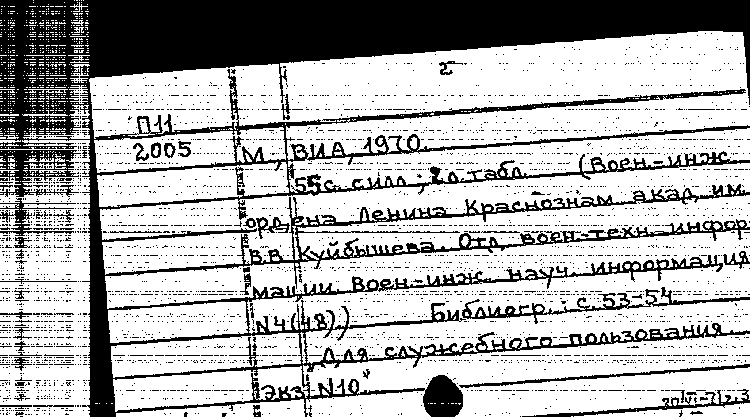 2
П11
2005 М., ВИА, 1970.
55с. силл.; 2л. табл. (Воен.-инж.
ордена Ленина Краснознам. акад. им.
В.В. Куйбышева. Отд. воен.-техн. инфор-
мации. Воен.-инж. науч. информация
N4(48).) Библиогр.: с. 53-54.
"Для служебного пользования.
Экз. N10"